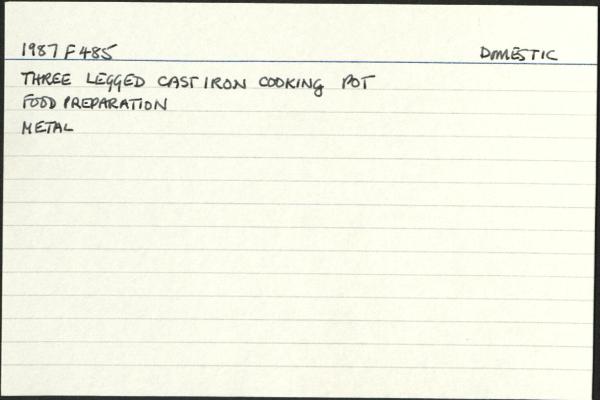 1987 F 485 DOMESTIC
THREE LEGGED CAST IRON COOKING POT
FOOD PREPARATION
METAL